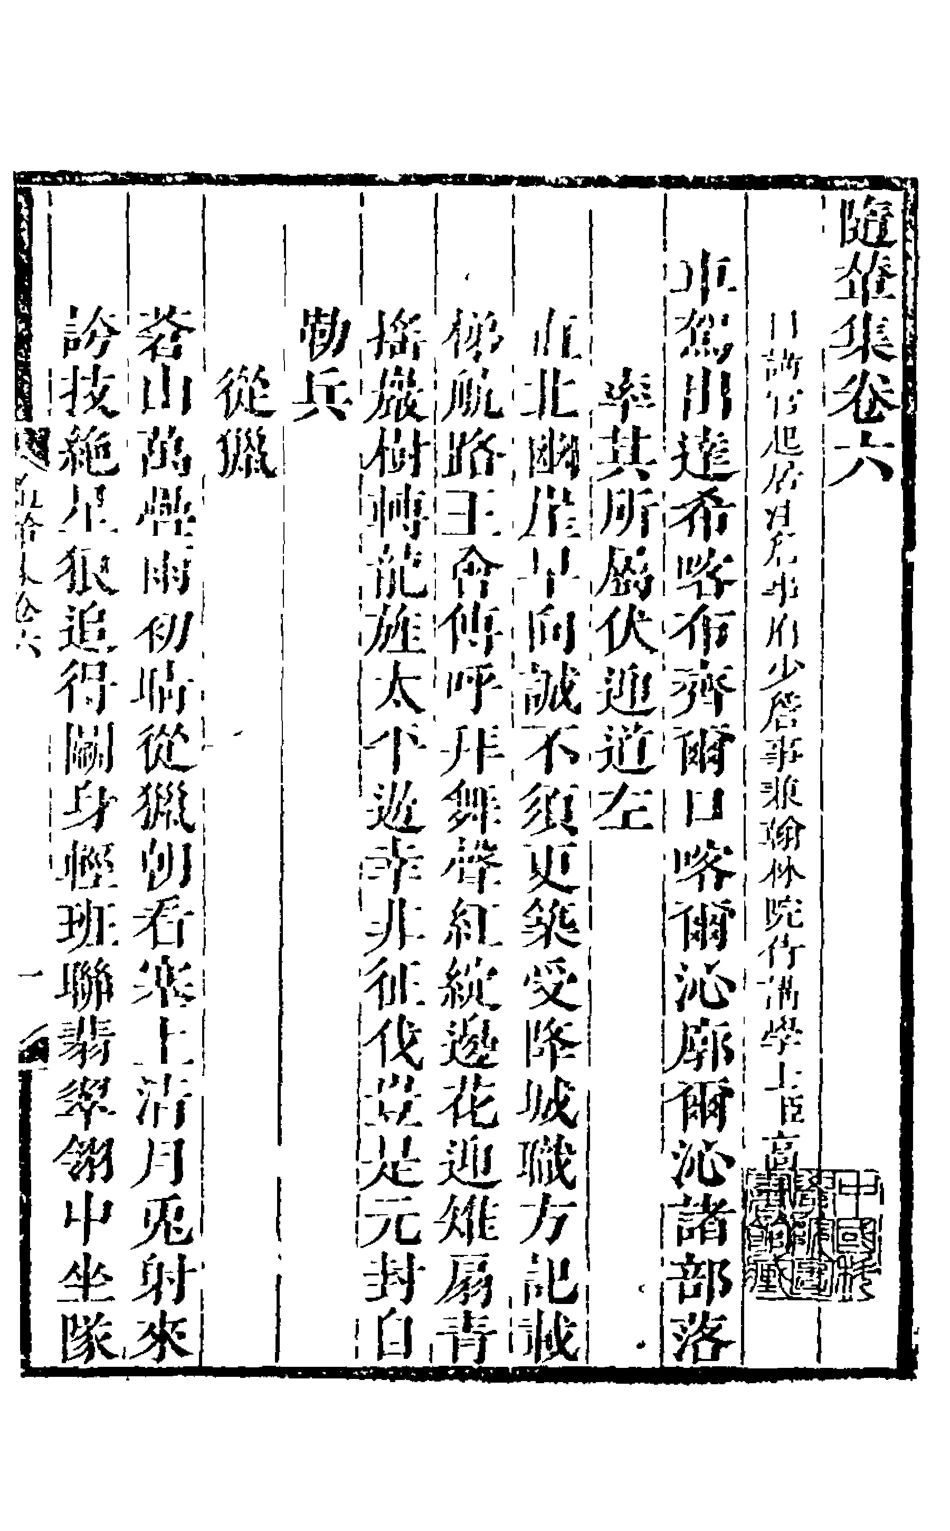 隨輦集卷六
日講官起居注詹事府少詹事兼翰林院侍講學士臣高
車駕出達希喀布齊爾口喀爾沁廓爾沁諸部落
率其所屬伏迎道左
直北幽崖早向誠不須更築受降城職方記載
梯航路王會傳呼拜舞聲紅綻邊花迎雉扇青
搖巖樹轉龍旌太平遊幸非征伐豈是元封自
勒兵
從獵
蒼山萬疊雨初晴從獵朝看塞上清月兎射來
誇技絶星狼追得鬬身輕班聯翡翠翎中坐隊
卷六
一